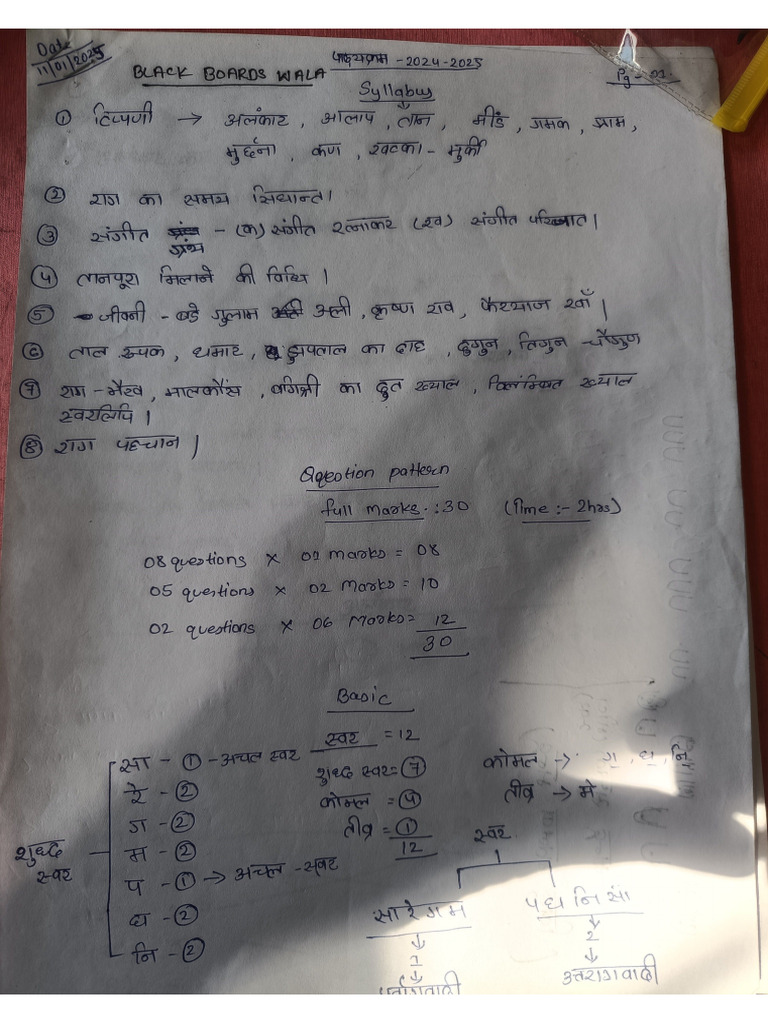 Date
11/01/2025
पाठ्यक्रम - 2024-2025
BLACK BOARDS WALA
Pg - 01.
Syllabus
① टिप्पणी → अलंकार, आलाप, तान, मींड, गमक, ग्राम,
मुर्छना, कण, खटका - मुर्की
② राग का समय सिधान्त।
③ संगीत ग्रंथ - (क) संगीत रत्नाकर (ख) संगीत परिजात।
④ तानपूरा मिलाने की विधि।
⑤ जीवनी - बडे गुलाम अली, कृष्ण राव, फैय्याज खाँ।
⑥ ताल रूपक, धमार, झपताल का ठाह, दुगुन, तिगुन - चौगुण
⑦ राग - भैरव, मालकौंस, का द्रुत ख्याल, विलंम्बित ख्याल
स्वरलिपि।
⑧ राग पहचान।
Question pattern
full marks :30 (Time :- 2hrs)
08 questions × 01 marks = 08
05 questions × 02 Marks = 10
02 questions × 06 Marks = 12
30
Basic
स्वर = 12
सा - ① - अचल स्वर
शुध्द स्वर = ⑦
कोमल →
ग, ध, नि
रे - ②
कोमल = ④
तीव्र → मे
ग - ②
तीव्र = ①
स्वर
शुध्द स्वर
म - ②
12
प - ① → अचल - स्वर
ध - ②
सा रे ग म
प ध नि सां
नि - ②
↓
1
↓
↓
2
↓
उत्तरागवादी
पूर्वागवादी